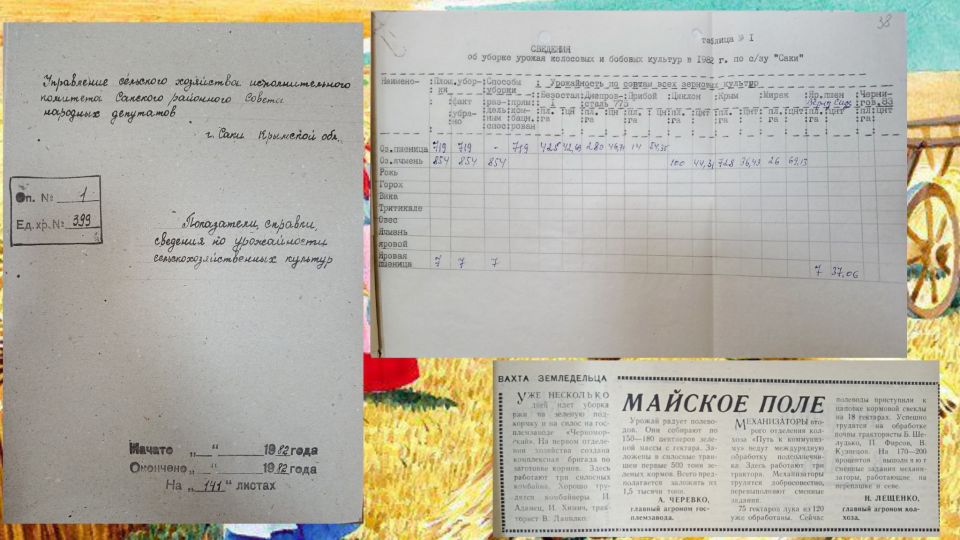 Управление сельского хозяйства исполнительного
комитета Сакского районного Совета
народных депутатов
г. Саки Крымской обл.
Оп. № 1
Ед. хр. № 399
Показатели, справки,
сведения по урожайности
сельскохозяйственных культур
Начато „ “ 1982 года
Окончено „ “ 1982 года
На „ 141 “ листах
38
таблица № I
СВЕДЕНИЯ
об уборке урожая колосовых и бобовых культур в 1982 г. по с/зу "Саки"
Наимено- :Площ.убор-:Способы : Урожайность по сортам всех зерновых культур
ки :уборки :безостая:Днепров-:Прибой :Циклон :Крым :Мирек :Яр.пшен :Черни-
:факт :раз-:прям: I :сталь 775 гов.83
:убра-:дель:ком- :пл. :Цн :пл. :цнт :пл. :Цн :пл. :цнт :пл. :Цнт :пл. :цнт :пл. :цнт :пл. :цнт
:но :ным :бацн. га га га га га га га га
:спос:рован
Оз.пшеница 719 719 - 719 425 42,69 280 14 54,35
Оз.ячмень 854 854 854 100 44,31 728 36,43 26 69,13
Рожь
Горох
Вика
Тритикале
Овес
Ячмень
яровой
Яровая
пшеница 7 7 7 7 37,06
ВАХТА ЗЕМЛЕДЕЛЬЦА
УЖЕ НЕСКОЛЬКО
дней идет уборка
ржи на зеленую под-
кормку и на силос на гос-
племзаводе «Черномор-
ский». На первом отделе-
нии хозяйства создана
комплексная бригада по
заготовке кормов. Здесь
работают три силосных
комбайна. Хорошо тру-
дятся комбайнеры И.
Адамец, И. Химич, трак-
торист В. Лапшко.
МАЙСКОЕ ПОЛЕ
Урожай радует полево-
дов. Они собирают по
150—180 центнеров зеле-
ной массы с гектара. За-
ложены в силосные тран-
шеи первые 500 тонн зе-
леных кормов. Всего пред-
полагается заложить их
1,5 тысячи тонн.
А. ЧЕРЕВКО,
главный агроном гос-
племзавода.
МЕХАНИЗАТОРЫ вто-
рого отделения кол-
хоза «Путь к коммуниз-
му» ведут междурядную
обработку подсолнечни-
ка. Здесь работают три
трактора. Механизаторы
трудятся добросовестно,
перевыполняют сменные
задания.
75 гектаров лука из 120
уже обработаны. Сейчас
полеводы приступили к
шаровке кормовой свеклы
на 18 гектарах. Успешно
трудятся на обработке
почвы трактористы Б. Ше-
лудько, П. Фирсов, В.
Кузнецов. На 170—200
процентов выполняют
сменные задания механи-
заторы, работающие на
перепашке в селе.
И. ЛЕЩЕНКО,
главный агроном кол-
хоза.